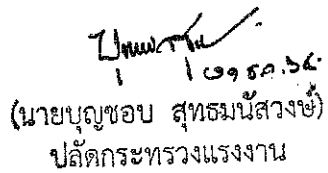 ๒๑ ธ.ค. ๖๔
(นายบุญชอบ สุทธมนัสวงษ์)
ปลัดกระทรวงแรงงาน